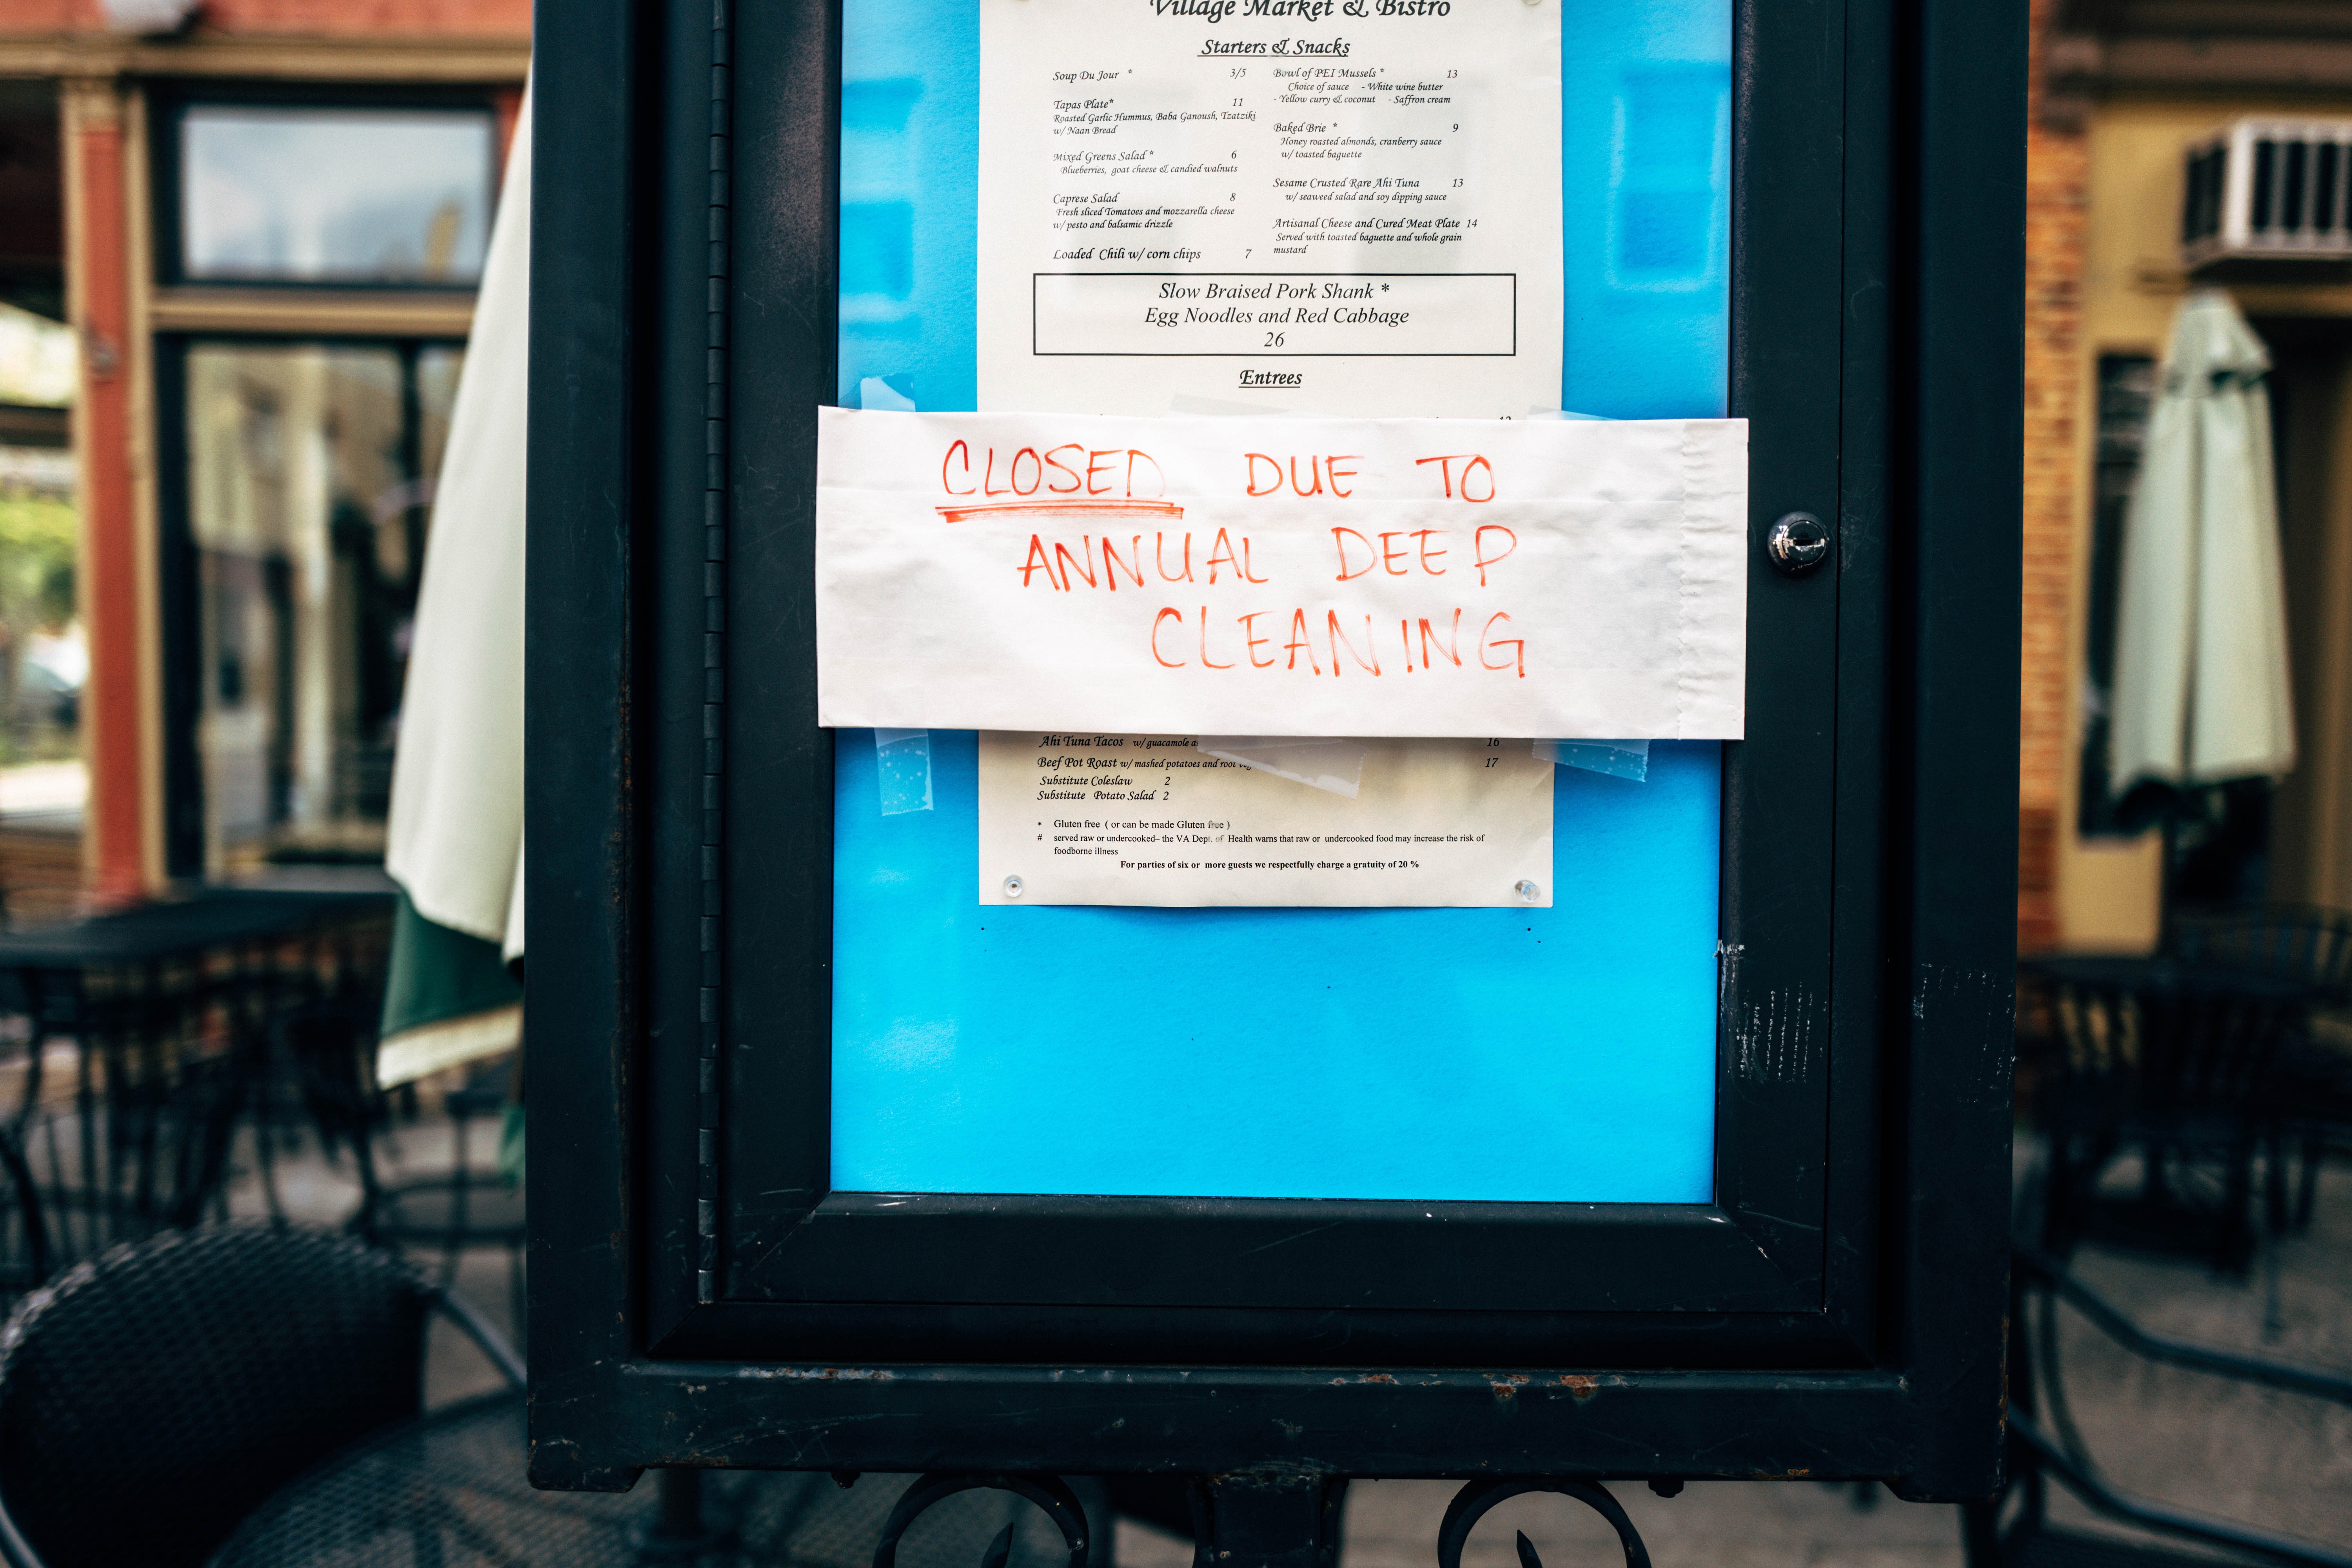 Village Market & Bistro
Starters & Snacks
Soup Du Jour * 3/5
Tapas Plate* 11
Roasted Garlic Hummus, Baba Ganoush, Tzatziki
w/ Naan Bread
Mixed Greens Salad * 6
Blueberries, goat cheese & candied walnuts
Caprese Salad 8
Fresh sliced Tomatoes and mozzarella cheese
w/ pesto and balsamic drizzle
Loaded Chili w/ corn chips 7
Bowl of PEI Mussels * 13
Choice of sauce - White wine butter
- Yellow curry & coconut - Saffron cream
Baked Brie * 9
Honey roasted almonds, cranberry sauce
w/ toasted baguette
Sesame Crusted Rare Ahi Tuna 13
w/ seaweed salad and soy dipping sauce
Artisanal Cheese and Cured Meat Plate 14
Served with toasted baguette and whole grain
mustard
Slow Braised Pork Shank *
Egg Noodles and Red Cabbage
26
Entrees
CLOSED DUE TO
ANNUAL DEEP
CLEANING
Ahi Tuna Tacos w/ guacamole 16
Beef Pot Roast w/ mashed potatoes and root 17
Substitute Coleslaw 2
Substitute Potato Salad 2
* Gluten free ( or can be made Gluten free )
# served raw or undercooked– the VA Dept. of Health warns that raw or undercooked food may increase the risk of
foodborne illness
For parties of six or more guests we respectfully charge a gratuity of 20 %